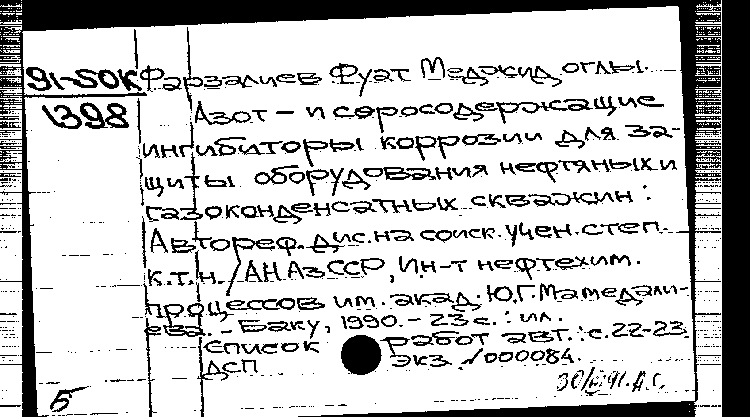 91-50К Фарзалиев Фуат Меджид оглы.
1398 Азот – и серосодержащие
ингибиторы коррозии для за-
щиты оборудования нефтяных и
газоконденсатных скважин :
Автореф. дис. на соиск. учен. степ.
к.т.н. / АН АзССР, Ин-т нефтехим.
процессов им. акад. Ю.Г. Мамедали-
ева. – Баку, 1990. – 23 с. : ил.
список работ авт. : с. 22-23.
ДСП экз. №000084.
Б